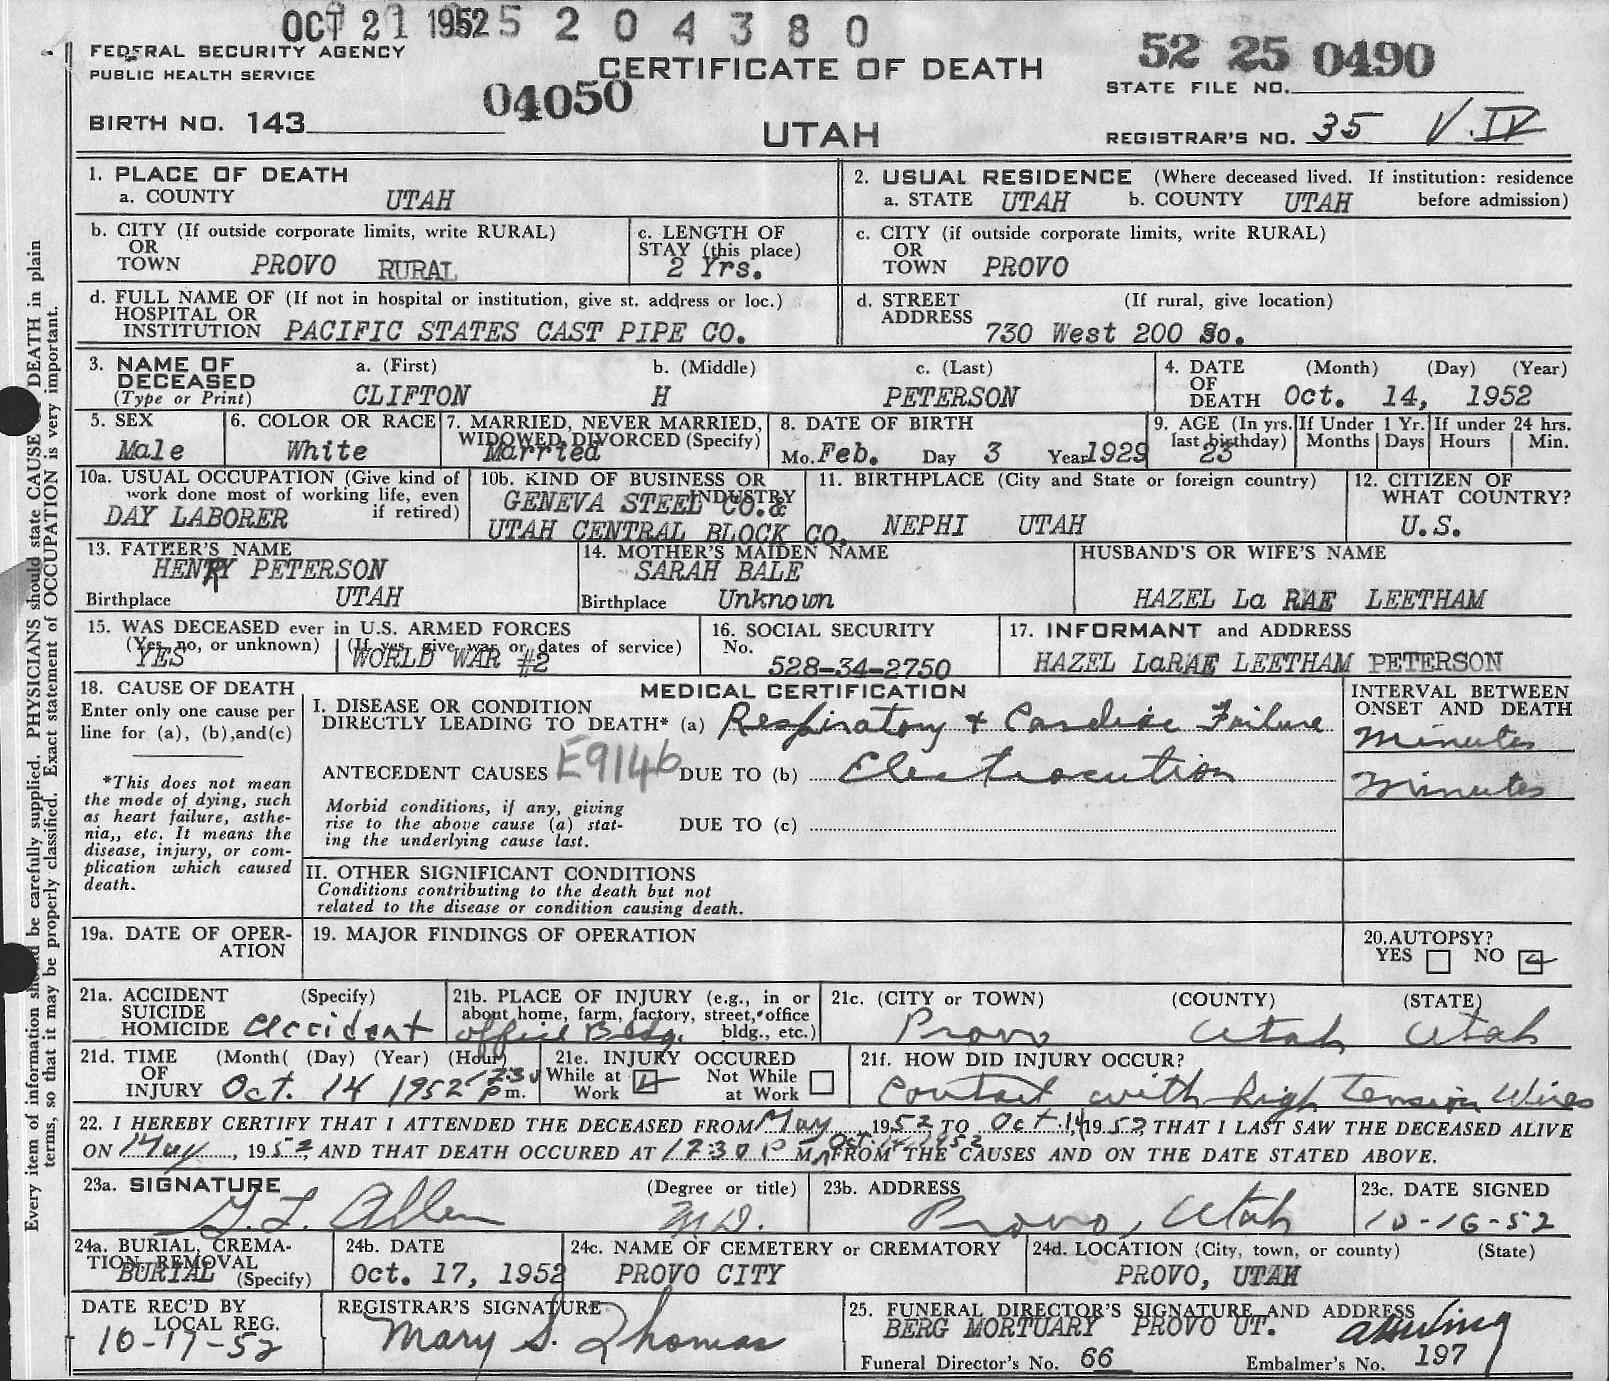 OCT 21 1952 5 2 0 4 3 8 0
FEDERAL SECURITY AGENCY
PUBLIC HEALTH SERVICE
CERTIFICATE OF DEATH
UTAH
52 25 0490
STATE FILE NO.
BIRTH NO. 143 04050
REGISTRAR'S NO. 35 V. IV
Every item of information should be carefully supplied. PHYSICIANS should state CAUSE DEATH in plain
terms, so that it may be properly classified. Exact statement of OCCUPATION is very important.
1. PLACE OF DEATH
a. COUNTY UTAH
2. USUAL RESIDENCE (Where deceased lived. If institution: residence
a. STATE UTAH b. COUNTY UTAH before admission)
b. CITY (If outside corporate limits, write RURAL)
OR
TOWN PROVO RURAL
c. LENGTH OF
STAY (this place)
2 Yrs.
c. CITY (if outside corporate limits, write RURAL)
OR
TOWN PROVO
d. FULL NAME OF (If not in hospital or institution, give st. address or loc.)
HOSPITAL OR
INSTITUTION PACIFIC STATES CAST PIPE CO.
d. STREET (If rural, give location)
ADDRESS 730 West 200 So.
3. NAME OF
DECEASED
(Type or Print)
a. (First) b. (Middle) c. (Last)
CLIFTON H PETERSON
4. DATE (Month) (Day) (Year)
OF
DEATH Oct. 14, 1952
5. SEX
Male
6. COLOR OR RACE
White
7. MARRIED, NEVER MARRIED,
WIDOWED, DIVORCED (Specify)
Married
8. DATE OF BIRTH
Mo. Feb. Day 3 Year 1929
9. AGE (In yrs. last birthday)
23
If Under 1 Yr.
Months Days
If under 24 hrs.
Hours Min.
10a. USUAL OCCUPATION (Give kind of
work done most of working life, even
if retired)
DAY LABORER
10b. KIND OF BUSINESS OR
INDUSTRY
GENEVA STEEL CO.&
UTAH CENTRAL BLOCK CO.
11. BIRTHPLACE (City and State or foreign country)
NEPHI UTAH
12. CITIZEN OF
WHAT COUNTRY?
U.S.
13. FATHER'S NAME
HENRY PETERSON
Birthplace UTAH
14. MOTHER'S MAIDEN NAME
SARAH BALE
Birthplace Unknown
HUSBAND'S OR WIFE'S NAME
HAZEL La RAE LEETHAM
15. WAS DECEASED ever in U.S. ARMED FORCES
(Yes, no, or unknown) (If yes, give war or dates of service)
YES WORLD WAR #2
16. SOCIAL SECURITY
No.
528-34-2750
17. INFORMANT and ADDRESS
HAZEL LaRAE LEETHAM PETERSON
18. CAUSE OF DEATH
Enter only one cause per
line for (a), (b),and(c)
*This does not mean
the mode of dying, such
as heart failure, asthe-
nia,, etc. It means the
disease, injury, or com-
plication which caused
death.
MEDICAL CERTIFICATION
I. DISEASE OR CONDITION
DIRECTLY LEADING TO DEATH* (a) Respiratory & Cardiac Failure
ANTECEDENT CAUSES E914b DUE TO (b) Electrocution
Morbid conditions, if any, giving
rise to the above cause (a) stat-
ing the underlying cause last.
DUE TO (c)
II. OTHER SIGNIFICANT CONDITIONS
Conditions contributing to the death but not
related to the disease or condition causing death.
INTERVAL BETWEEN
ONSET AND DEATH
Minutes
Minutes
19a. DATE OF OPER-
ATION
19. MAJOR FINDINGS OF OPERATION
20. AUTOPSY?
YES NO
21a. ACCIDENT (Specify)
SUICIDE
HOMICIDE accident
21b. PLACE OF INJURY (e.g., in or
about home, farm, factory, street, office
bldg., etc.)
office Bldg.
21c. (CITY or TOWN) (COUNTY) (STATE)
Provo Utah Utah
21d. TIME (Month( (Day) (Year) (Hour)
OF
INJURY Oct. 14 1952 12:30 P m.
21e. INJURY OCCURED
While at Work Not While at Work
21f. HOW DID INJURY OCCUR?
Contact with high tension Wires
22. I HEREBY CERTIFY THAT I ATTENDED THE DECEASED FROM May 1952 TO Oct. 14, 1952, THAT I LAST SAW THE DECEASED ALIVE
Oct. 14, 1952
ON May, 1952, AND THAT DEATH OCCURED AT 12:30 P M., FROM THE CAUSES AND ON THE DATE STATED ABOVE.
23a. SIGNATURE (Degree or title)
Allen M.D.
23b. ADDRESS
Provo, Utah
23c. DATE SIGNED
10-16-52
24a. BURIAL, CREMA-
TION, REMOVAL
BURIAL (Specify)
24b. DATE
Oct. 17, 1952
24c. NAME OF CEMETERY or CREMATORY
PROVO CITY
24d. LOCATION (City, town, or county) (State)
PROVO, UTAH
DATE REC'D BY
LOCAL REG.
10-17-52
REGISTRAR'S SIGNATURE
Mary S. Thomas
25. FUNERAL DIRECTOR'S SIGNATURE AND ADDRESS
BERG MORTUARY PROVO UT.
Funeral Director's No. 66 Embalmer's No. 197